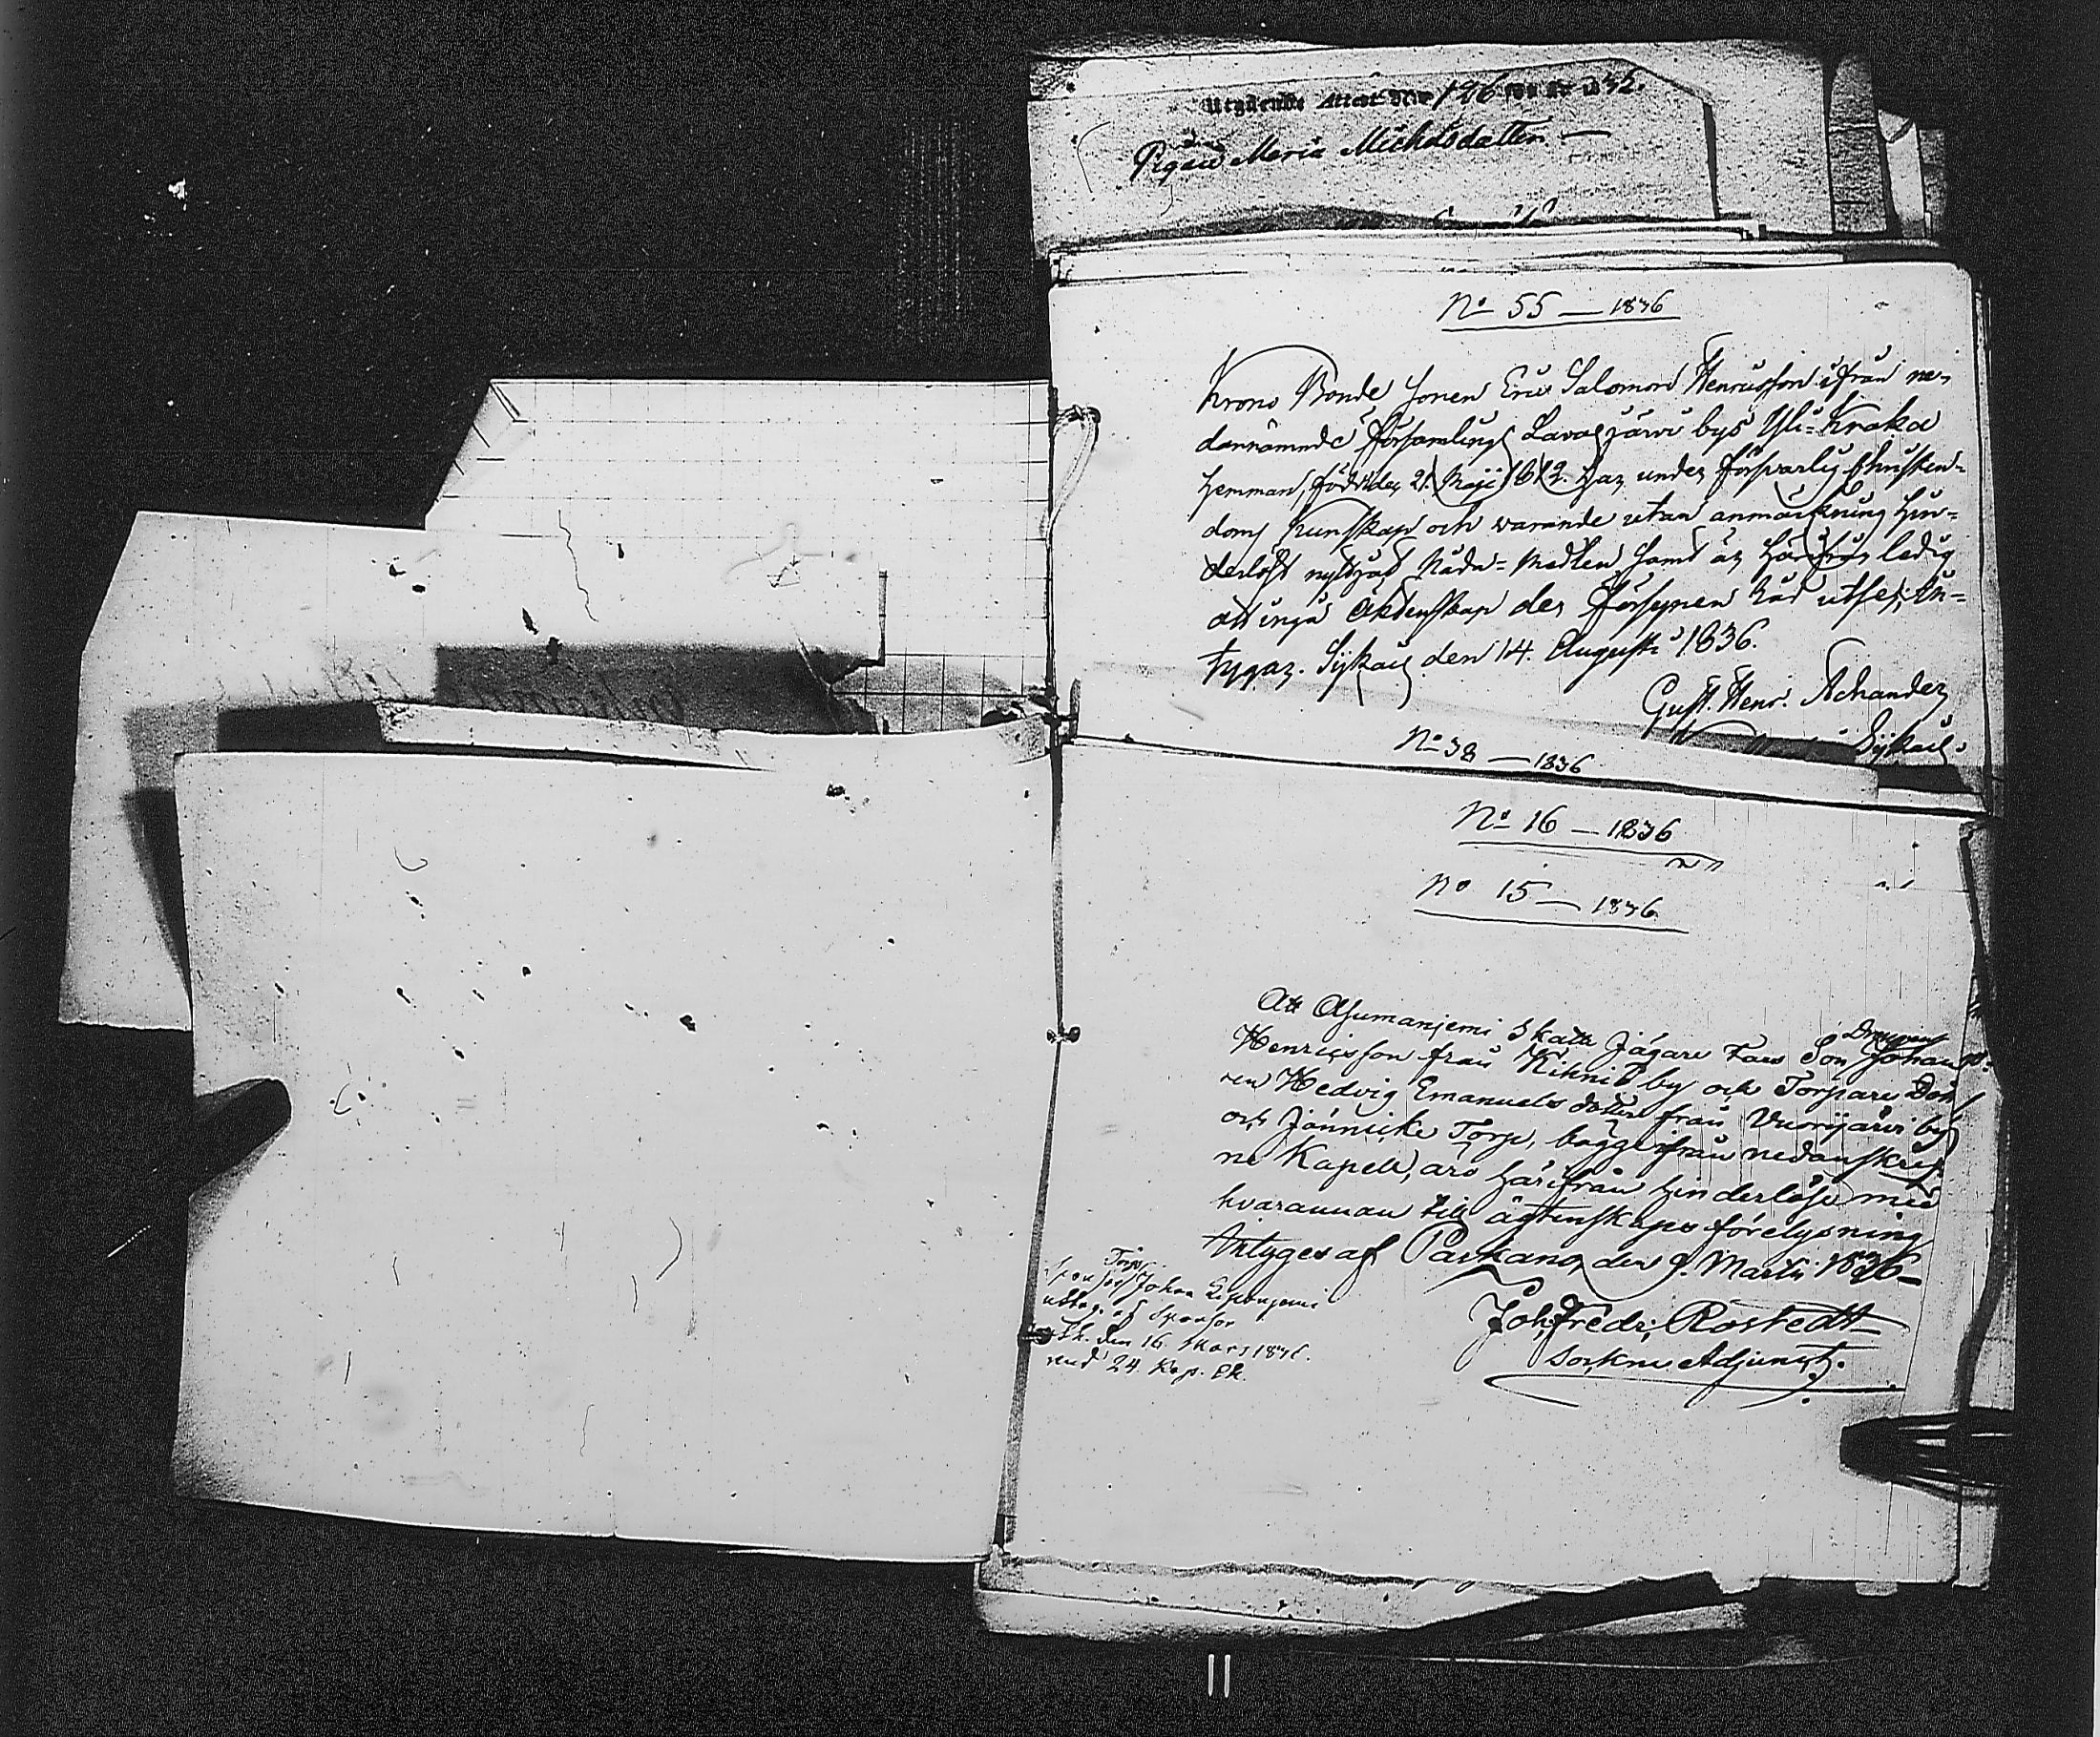 Utgående Attest N:o 126
Pigan Maria Michelsdotter
No 55 — 1836
Krono Bonde Sonen Eric Salomon Henricsson ifrån ne-
dannämnde Församlings Lavasjärvi bys Yli-Kraka
hemman, född den 21 Maji 1812. har under försvarlig Christen-
doms Kunskap och warande utan anmärkning hin-
derlöst nyttjat Nåda-Medlen samt är härifrån ledig
att ingå Äktenskap der Försynen härtill utser, In-
tygar. Sijkais den 14. Augusti 1836.
Gust. Henr. Achander
Sijkais
No 38 — 1836
No 16 — 1836
No 15 — 1836
Att Asumaniemi Skatte Jägare Tors Son Drengen Johan
Henricsson från Kihniö by och Torpare Dott
ren Hedvig Emanuels dotter från Vuorijärvi by
och Jännicke Torp, bägge ifrån nedanskrif
ne Kapell, äro härifrån hinderlöse med
hvarannan till ägtenskaps förelysning
Intygas af Parkano, den 9. Martii 1836
Joh. Fredr. Rostedt
Sockne Adjunct.
Torp.
Johan
uttag. af Sponsor
den 16 Mars 1836.
med 24. Kop.